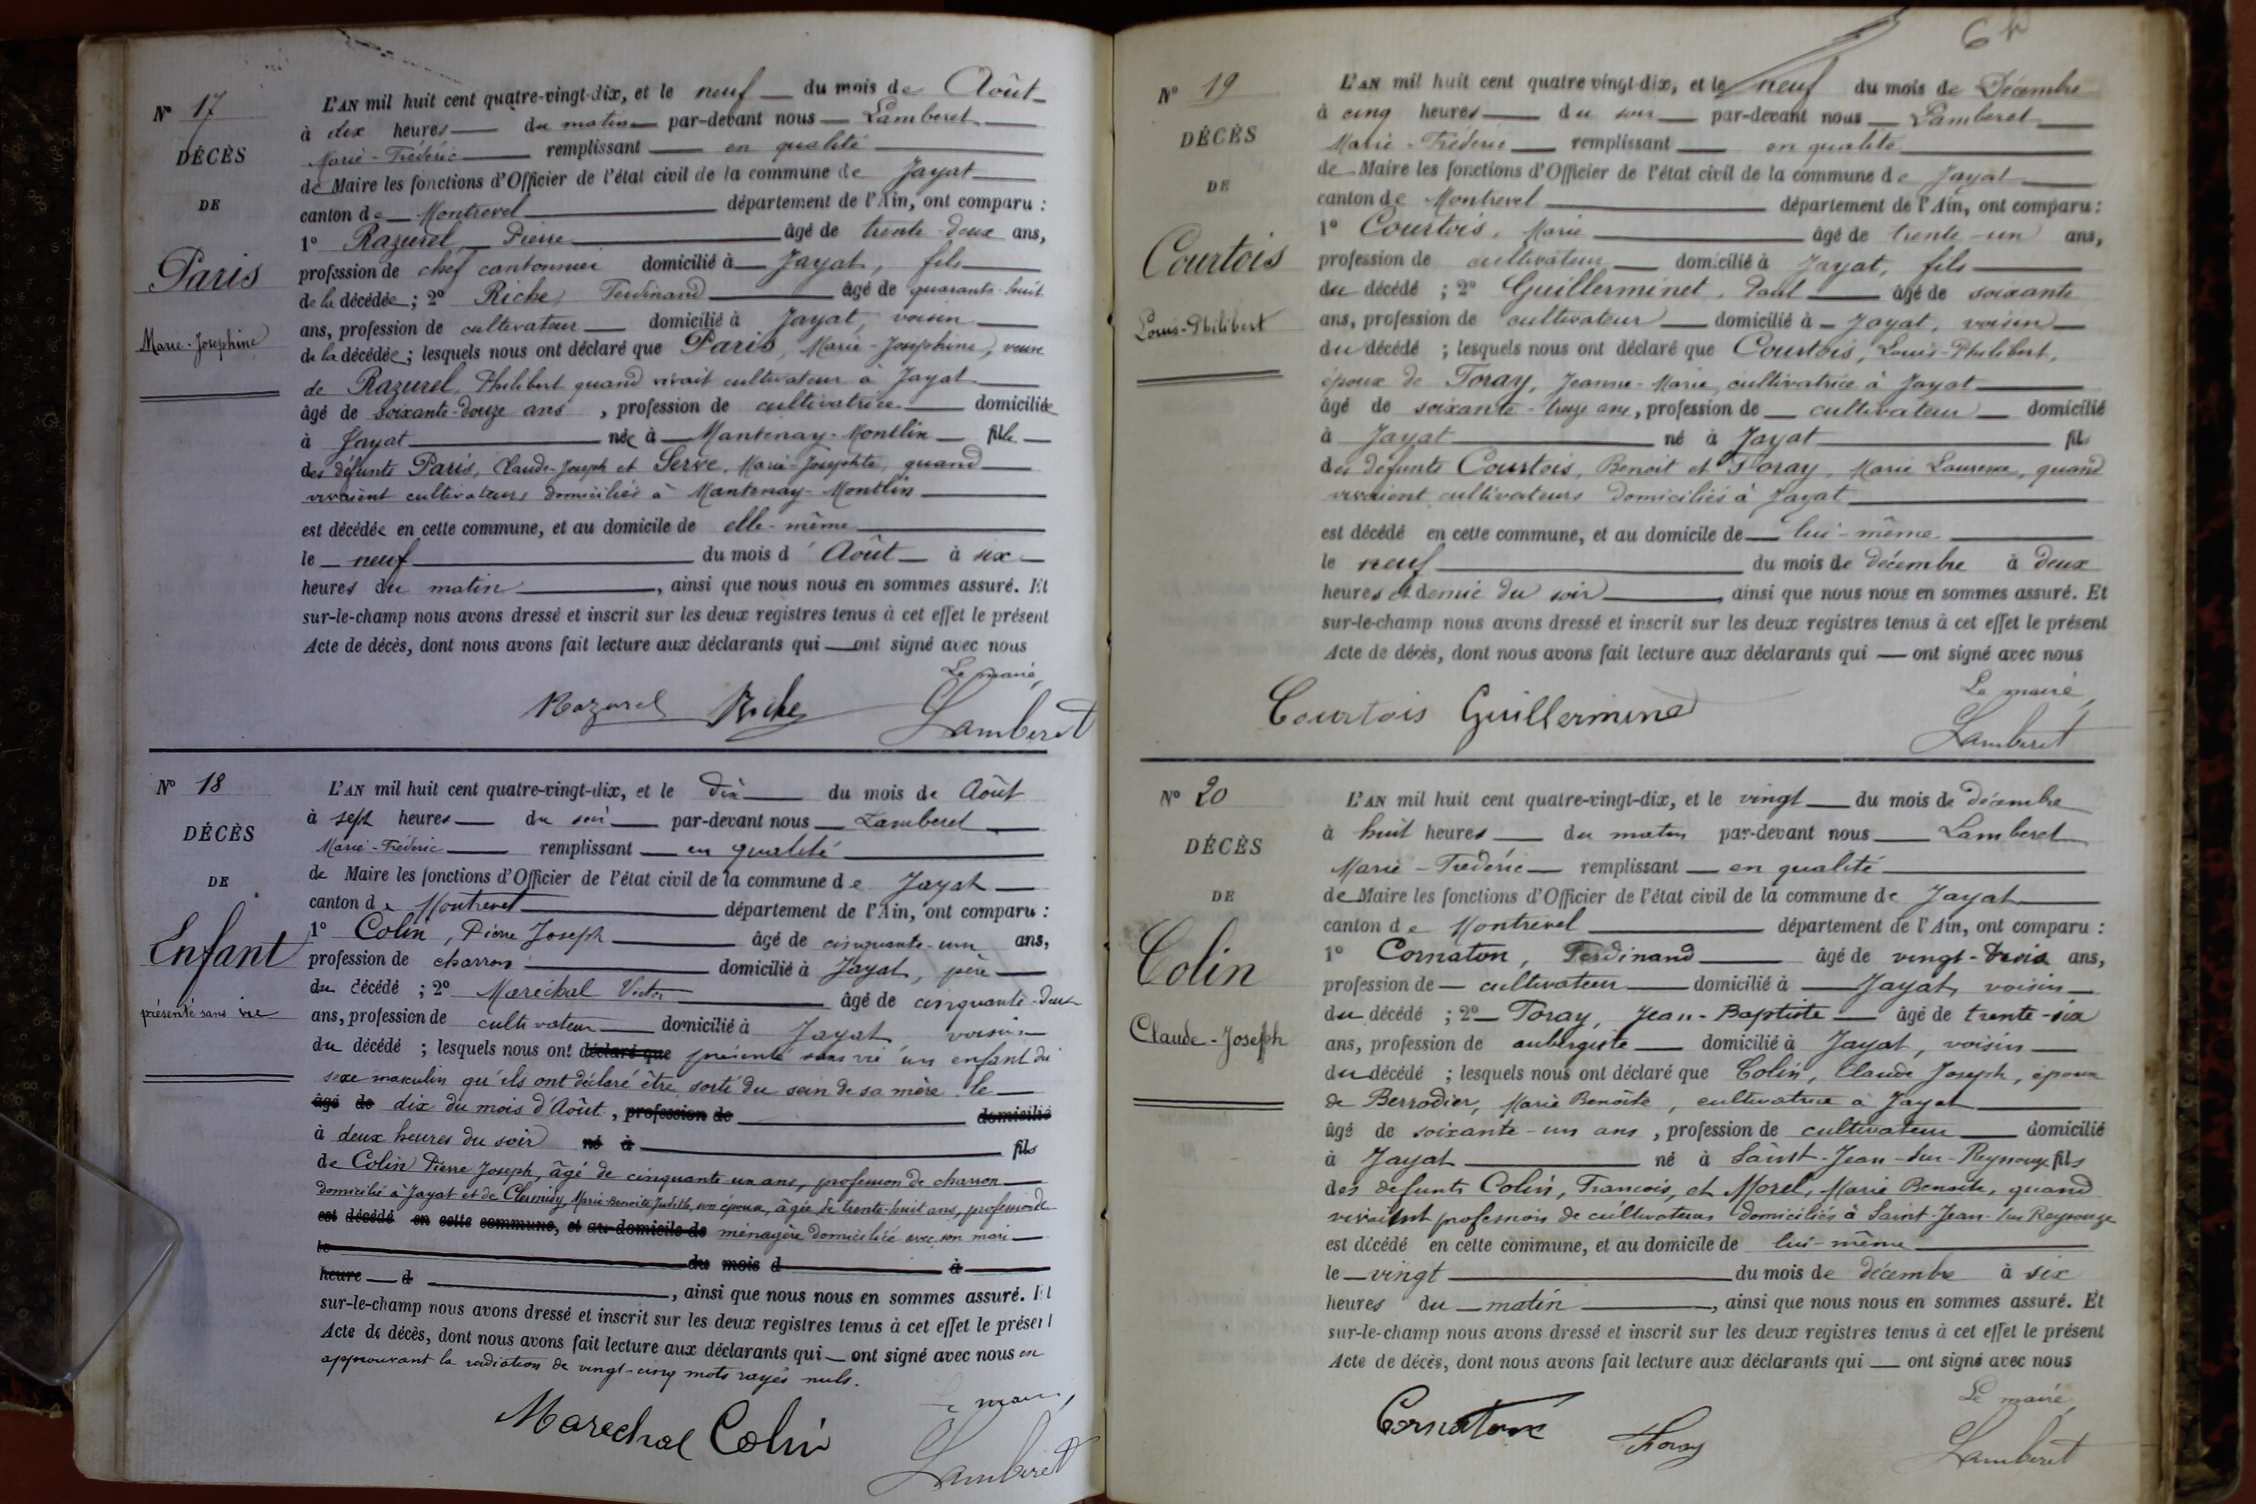 Nº 17
DÉCÈS
DE
Paris
Marie-Josephine
L'AN mil huit cent quatre-vingt-dix, et le neuf du mois de Août
à dix heures du matin par-devant nous Lamberet
Marie-Fréderic remplissant en qualité
de Maire les fonctions d'Officier de l'état civil de la commune de Jayat
canton de Montrevel département de l'Ain, ont comparu :
1º Razurel Pierre âgé de trente-deux ans,
profession de chef cantonnier domicilié à Jayat, fils
de la décédée ; 2º Riche, Ferdinand âgé de quarante-huit
ans, profession de cultivateur domicilié à Jayat, voisin
de la décédée ; lesquels nous ont déclaré que Paris, Marie-Josephine, veuve
de Razurel, Philibert quand vivait cultivateur à Jayat
âgé de soixante-douze ans, profession de cultivatrice domiciliée
à Jayat née à Mantenay-Montlin fille
des défunts Paris, Claude-Joseph et Serve, Marie-Josephte, quand
vivaient cultivateurs domiciliés à Mantenay-Montlin
est décédée en cette commune, et au domicile de elle-même
le neuf du mois d'Août à six
heures du matin, ainsi que nous nous en sommes assuré. Et
sur-le-champ nous avons dressé et inscrit sur les deux registres tenus à cet effet le présent
Acte de décès, dont nous avons fait lecture aux déclarants qui ont signé avec nous
Le maire,
Razurel Riche Lamberet
Nº 18
DÉCÈS
DE
Enfant
présenté sans vie
L'AN mil huit cent quatre-vingt-dix, et le dix du mois de Août
à sept heures du soir par-devant nous Lamberet
Marie-Fréderic remplissant en qualité
de Maire les fonctions d'Officier de l'état civil de la commune de Jayat
canton de Montrevel département de l'Ain, ont comparu :
1º Colin, Pierre Joseph âgé de cinquante-un ans,
profession de charron domicilié à Jayat, père
du décédé ; 2º Maréchal Victor âgé de cinquante-deux
ans, profession de cultivateur domicilié à Jayat voisin
du décédé ; lesquels nous ont déclaré que présenté sans vie un enfant du
sexe masculin qu'ils ont déclaré être sorti du sein de sa mère le
âgé de dix du mois d'Août, profession de domicilié
à deux heures du soir né à fils
de Colin Pierre Joseph, âgé de cinquante un ans, profession de charron
domicilié à Jayat et de Marie-Benoite Judith, son épouse, âgée de trente-huit ans, profession de
est décédé en cette commune, et au domicile de ménagère domiciliée avec son mari
le du mois d à
heure d, ainsi que nous nous en sommes assuré. Et
sur-le-champ nous avons dressé et inscrit sur les deux registres tenus à cet effet le présent
Acte de décès, dont nous avons fait lecture aux déclarants qui ont signé avec nous en
approuvant la radiation de vingt-cinq mots rayés nuls.
Le maire,
Marechal Colin Lamberet
Nº 19
DÉCÈS
DE
Courtois
Louis-Philibert
L'AN mil huit cent quatre-vingt-dix, et le neuf du mois de Décembre
à cinq heures du soir par-devant nous Lamberet
Marie-Fréderic remplissant en qualité
de Maire les fonctions d'Officier de l'état civil de la commune de Jayat
canton de Montrevel département de l'Ain, ont comparu :
1º Courtois, Marie âgé de trente-un ans,
profession de cultivateur domicilié à Jayat, fils
du décédé ; 2º Guillerminet, Paul âgé de soixante
ans, profession de cultivateur domicilié à Jayat, voisin
du décédé ; lesquels nous ont déclaré que Courtois, Louis-Philibert,
époux de Foray, Jeanne-Marie, cultivatrice à Jayat
âgé de soixante-treize ans, profession de cultivateur domicilié
à Jayat né à Jayat fils
des défunts Courtois, Benoit et Foray, Marie Laurence, quand
vivaient cultivateurs domiciliés à Jayat
est décédé en cette commune, et au domicile de lui-même
le neuf du mois de décembre à deux
heures et demie du soir, ainsi que nous nous en sommes assuré. Et
sur-le-champ nous avons dressé et inscrit sur les deux registres tenus à cet effet le présent
Acte de décès, dont nous avons fait lecture aux déclarants qui ont signé avec nous
Le maire,
Courtois Guillerminet Lamberet
Nº 20
DÉCÈS
DE
Colin
Claude-Joseph
L'AN mil huit cent quatre-vingt-dix, et le vingt du mois de décembre
à huit heures du matin par-devant nous Lamberet
Marie-Fréderic remplissant en qualité
de Maire les fonctions d'Officier de l'état civil de la commune de Jayat
canton de Montrevel département de l'Ain, ont comparu :
1º Cornaton, Ferdinand âgé de vingt-trois ans,
profession de cultivateur domicilié à Jayat, voisin
du décédé ; 2º Foray, Jean-Baptiste âgé de trente-six
ans, profession de aubergiste domicilié à Jayat, voisin
du décédé ; lesquels nous ont déclaré que Colin, Claude Joseph, époux
de Berrodier, Marie Benoite, cultivatrice à Jayat
âgé de soixante-un ans, profession de cultivateur domicilié
à Jayat né à Saint-Jean-sur-Reyssouze fils
des défunts Colin, François, et Morel, Marie Benoite, quand
vivaient profession de cultivateurs domiciliés à Saint-Jean-sur Reyssouze
est décédé en cette commune, et au domicile de lui-même
le vingt du mois de décembre à six
heures du matin, ainsi que nous nous en sommes assuré. Et
sur-le-champ nous avons dressé et inscrit sur les deux registres tenus à cet effet le présent
Acte de décès, dont nous avons fait lecture aux déclarants qui ont signé avec nous
Le maire,
Cornaton Foray Lamberet